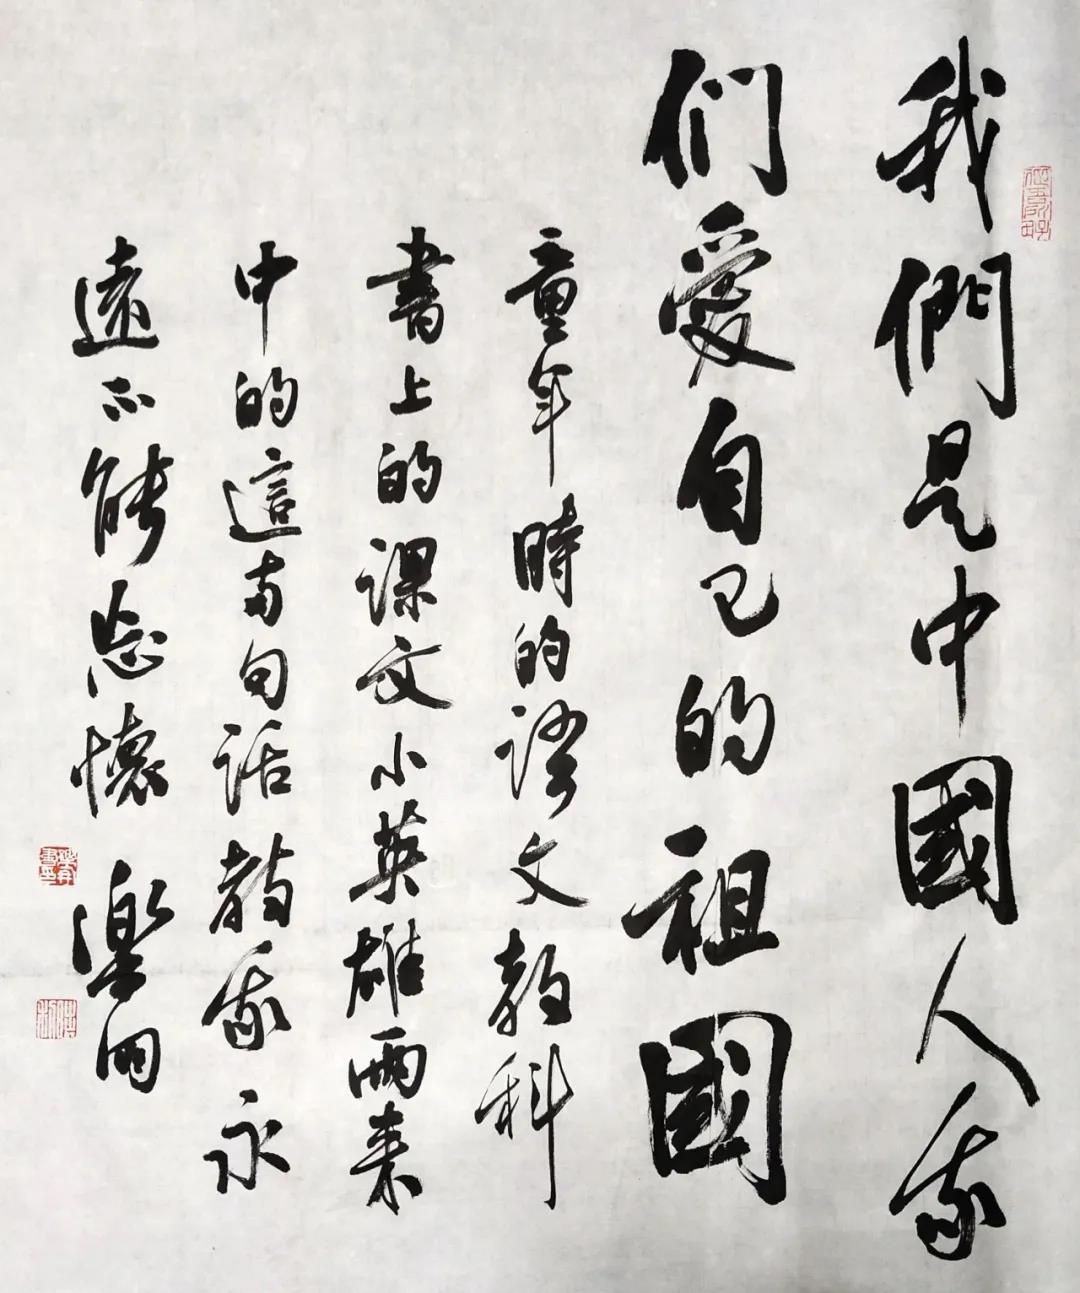 我們是中國人我
们愛自己的祖國
童年時的语文教科
書上的课文小英雄雨来
中的這两句话教我永
遠不能忘懷